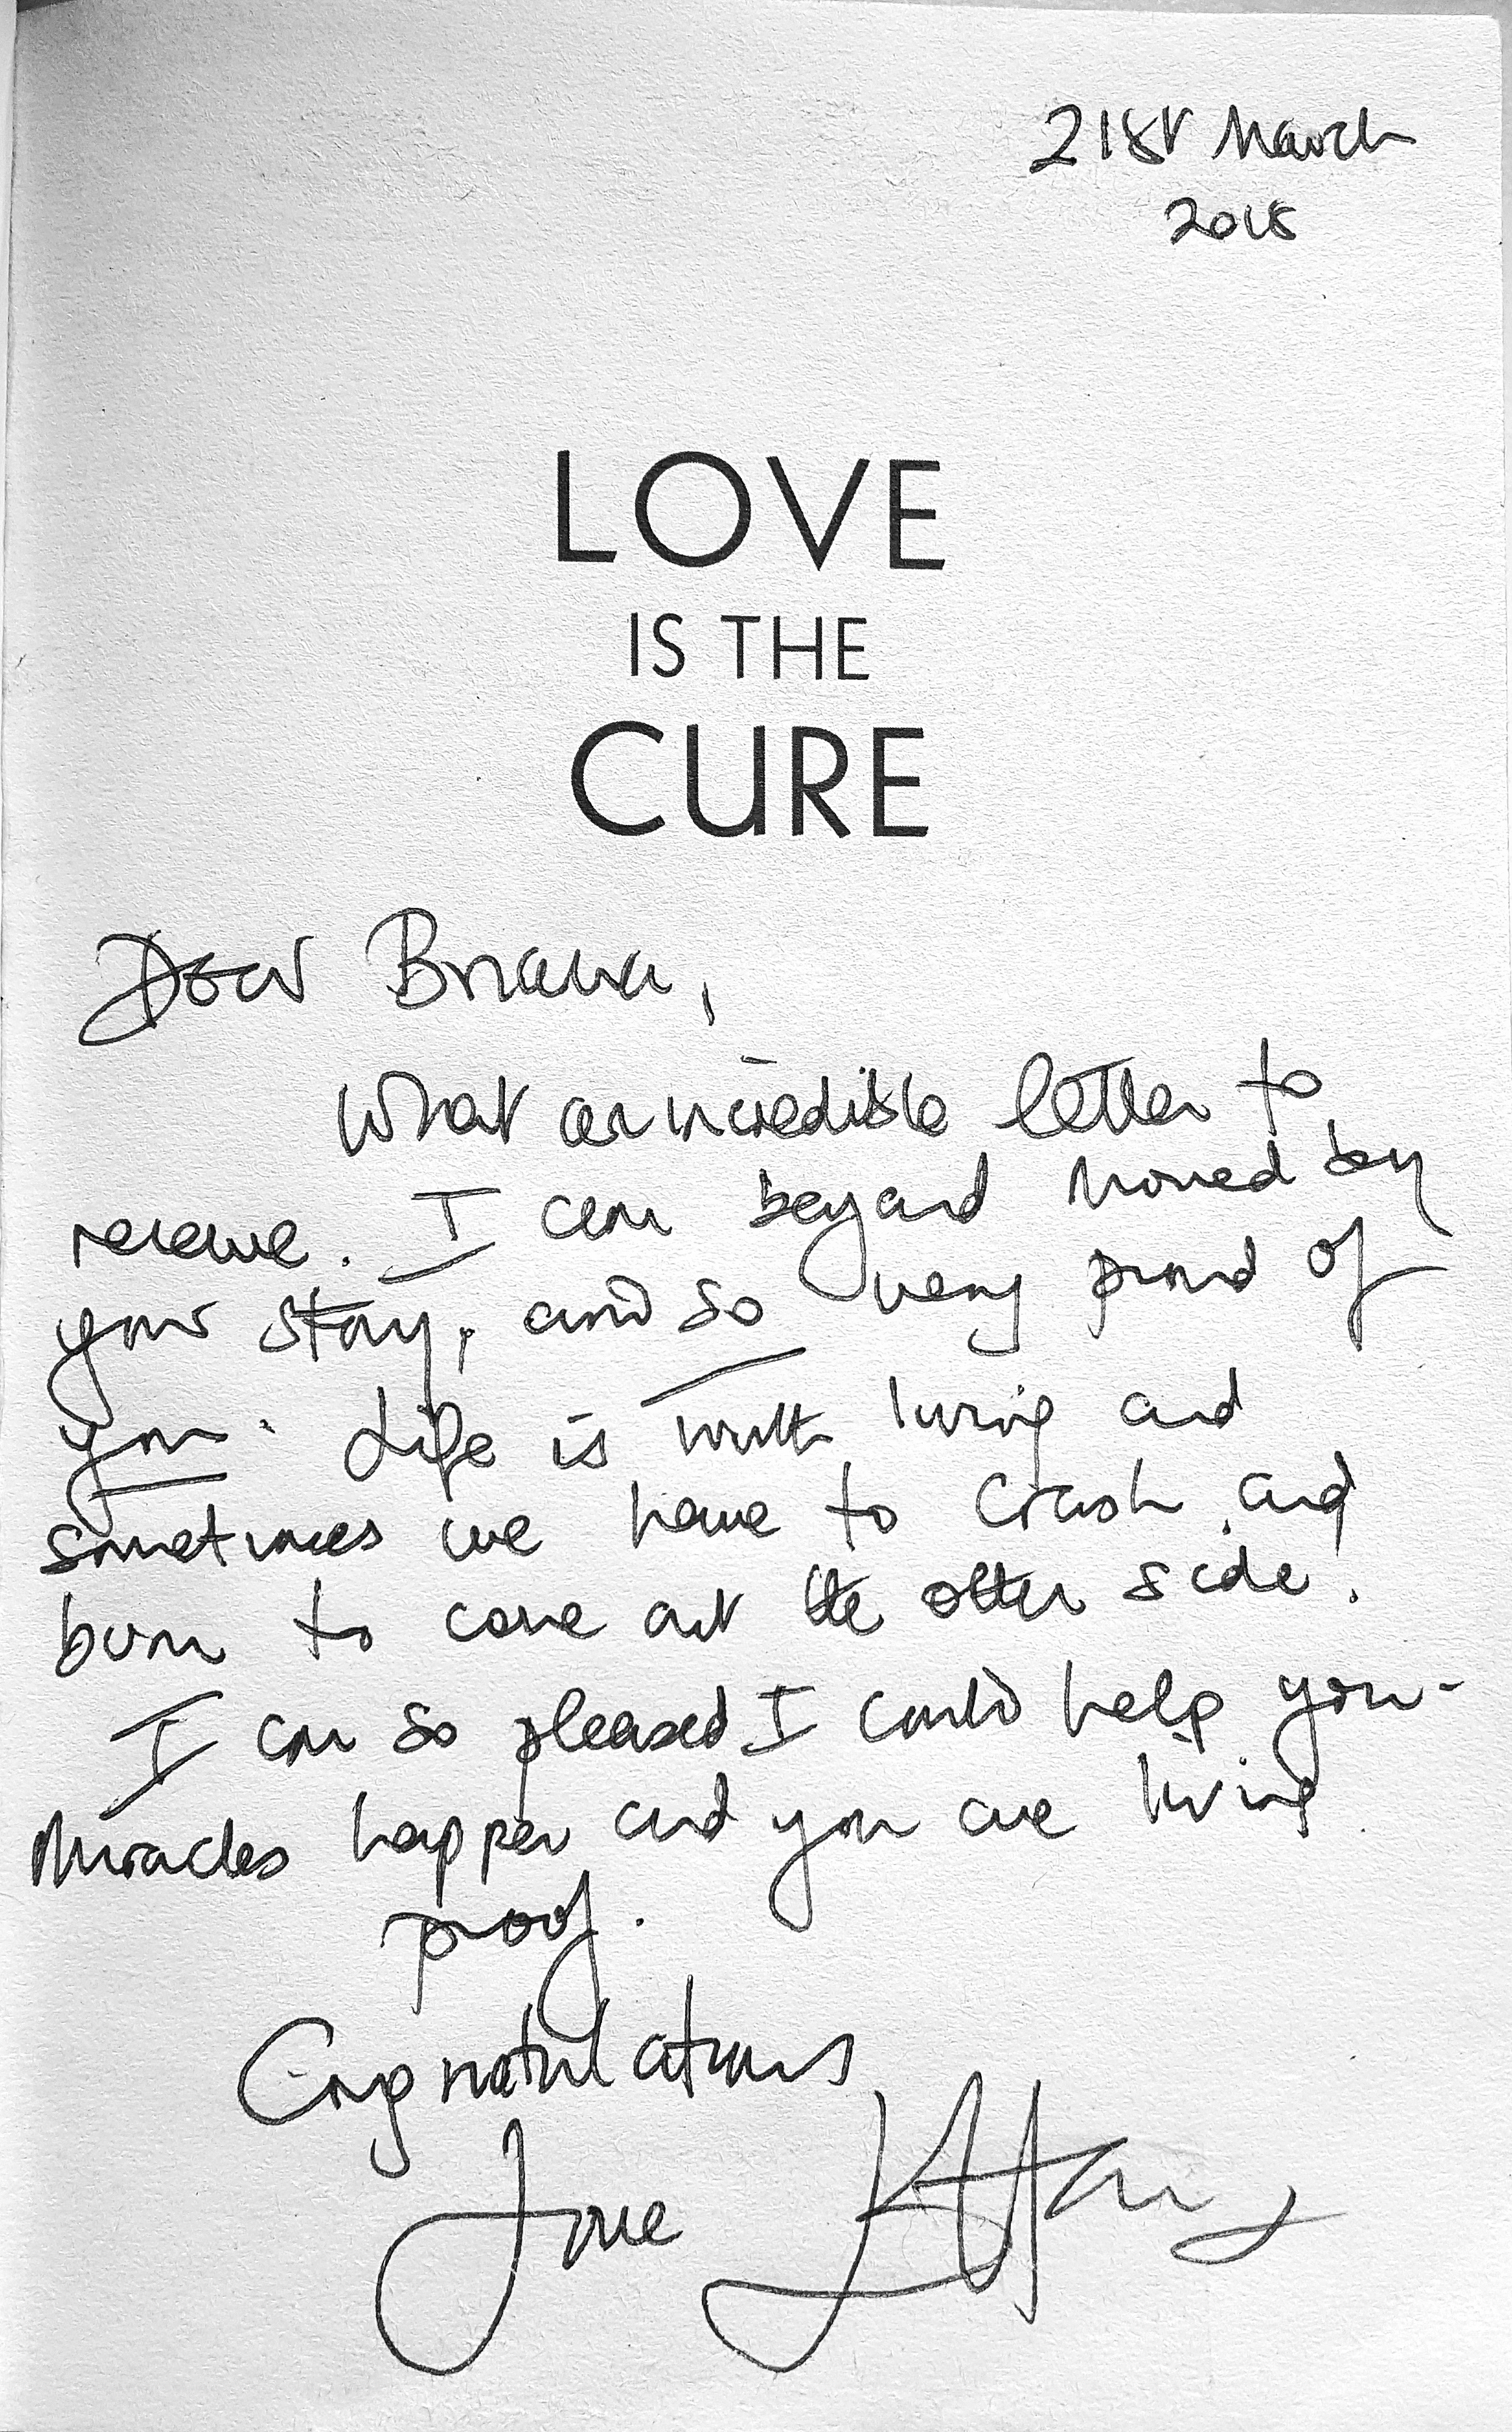 21st March
2018
LOVE
IS THE
CURE
Dear Briana,
What an incredible letter to
receive. I am beyond moved by
your story, and so very proud of
you. Life is worth living and
sometimes we have to crash and
burn to come out the other side.
I am so pleased I could help you-
Miracles happen and you are living
proof.
Congratulations